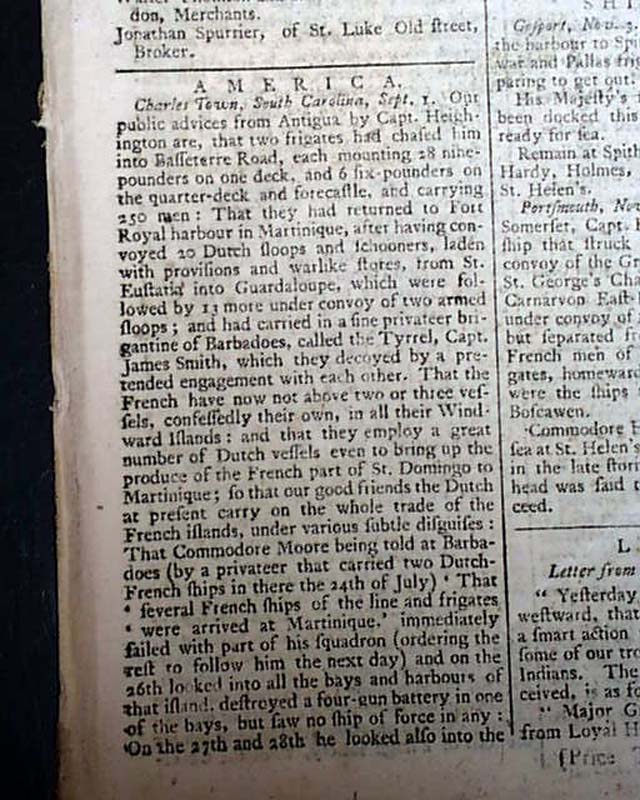 don, Merchants.
Jonathan Spurrier, of St. Luke Old ſtreet,
Broker.
A M E R I C A.
Charles Town, South Carolina, Sept. 1. Our
public advices from Antigua by Capt. Heigh-
ington are, that two frigates had chaſed him
into Baſſeterre Road, each mounting 28 nine-
pounders on one deck, and 6 ſix-pounders on
the quarter-deck and forecaſtle, and carrying
250 men: That they had returned to Fort
Royal harbour in Martinique, after having con-
voyed 20 Dutch ſloops and ſchooners, laden
with proviſions and warlike ſtores, from St.
Euſtatia into Guardaloupe, which were fol-
lowed by 13 more under convoy of two armed
ſloops; and had carried in a fine privateer bri-
gantine of Barbadoes, called the Tyrrel, Capt.
James Smith, which they decoyed by a pre-
tended engagement with each other. That the
French have now not above two or three veſ-
ſels, confeſſedly their own, in all their Wind-
ward Iſlands: and that they employ a great
number of Dutch veſſels even to bring up the
produce of the French part of St. Domingo to
Martinique; ſo that our good friends the Dutch
at preſent carry on the whole trade of the
French iſlands, under various ſubtle diſguiſes:
That Commodore Moore being told at Barba-
does (by a privateer that carried two Dutch-
French ſhips in there the 24th of July) ‘ That
‘ ſeveral French ſhips of the line and frigates
‘ were arrived at Martinique,’ immediately
ſailed with part of his ſquadron (ordering the
reſt to follow him the next day) and on the
26th looked into all the bays and harbours of
that iſland, deſtroyed a four-gun battery in one
of the bays, but ſaw no ſhip of force in any:
On the 27th and 28th he looked alſo into the
S H I
Goſport, Nov. 3.
the harbour to Spi
war and Pallas frig
paring to get out.
His Majeſty's
been docked this
ready for ſea.
Remain at Spith
Hardy, Holmes,
St. Helen's.
Portſmouth, Nov
Somerſet, Capt.
ſhip that ſtruck
convoy of the Gr
St. George's Cha
Carnarvon Eaſt-
under convoy of
but ſeparated fr
French men of
gates, homeward
were the ſhips
Boſcawen.
Commodore H
ſea at St. Helen's
in the late ſtor
head was ſaid t
ceed.
L
Letter from
“ Yeſterday
weſtward, that
a ſmart action
ſome of our tro
Indians. The
ceived, is as fo
“ Major G
from Loyal H
[Price